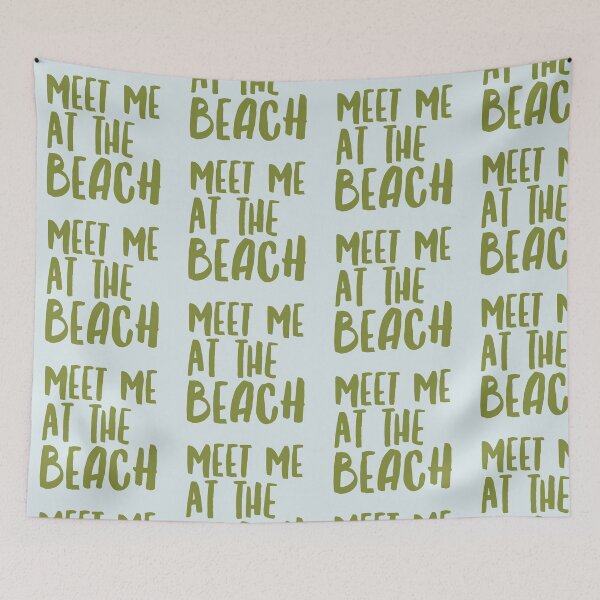 MEET ME
AT THE
BEACH
MEET ME
AT THE
BEACH
MEET ME
AT THE
BEACH
MEET ME
AT THE
BEACH
MEET ME
AT THE
BEACH
MEET ME
AT THE
BEACH
MEET ME
AT THE
BEACH
MEET ME
AT THE
BEACH
MEET ME
AT THE
BEACH
MEET ME
AT THE
BEACH
MEET ME
AT THE
BEAC
MEET M
AT THE
BEAC
MEET M
AT THE
BEAC
MEET M
AT THE